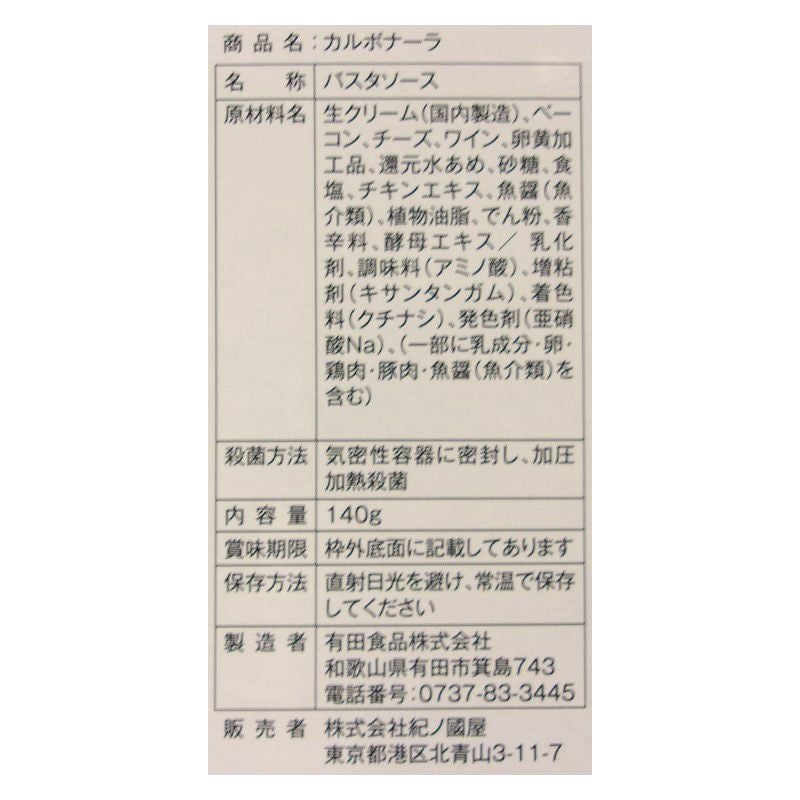 商品名：カルボナーラ
名称 パスタソース
原材料名 生クリーム（国内製造）、ベー
コン、チーズ、ワイン、卵黄加
工品、還元水あめ、砂糖、食
塩、チキンエキス、魚醤（魚
介類）、植物油脂、でん粉、香
辛料、酵母エキス／乳化
剤、調味料（アミノ酸）、増粘
剤（キサンタンガム）、着色
料（クチナシ）、発色剤（亜硝
酸Na）、（一部に乳成分・卵・
鶏肉・豚肉・魚醤（魚介類）を
含む）
殺菌方法 気密性容器に密封し、加圧
加熱殺菌
内容量 140g
賞味期限 枠外底面に記載してあります
保存方法 直射日光を避け、常温で保存
してください
製造者 有田食品株式会社
和歌山県有田市箕島743
電話番号：0737-83-3445
販売者 株式会社紀ノ國屋
東京都港区北青山3-11-7